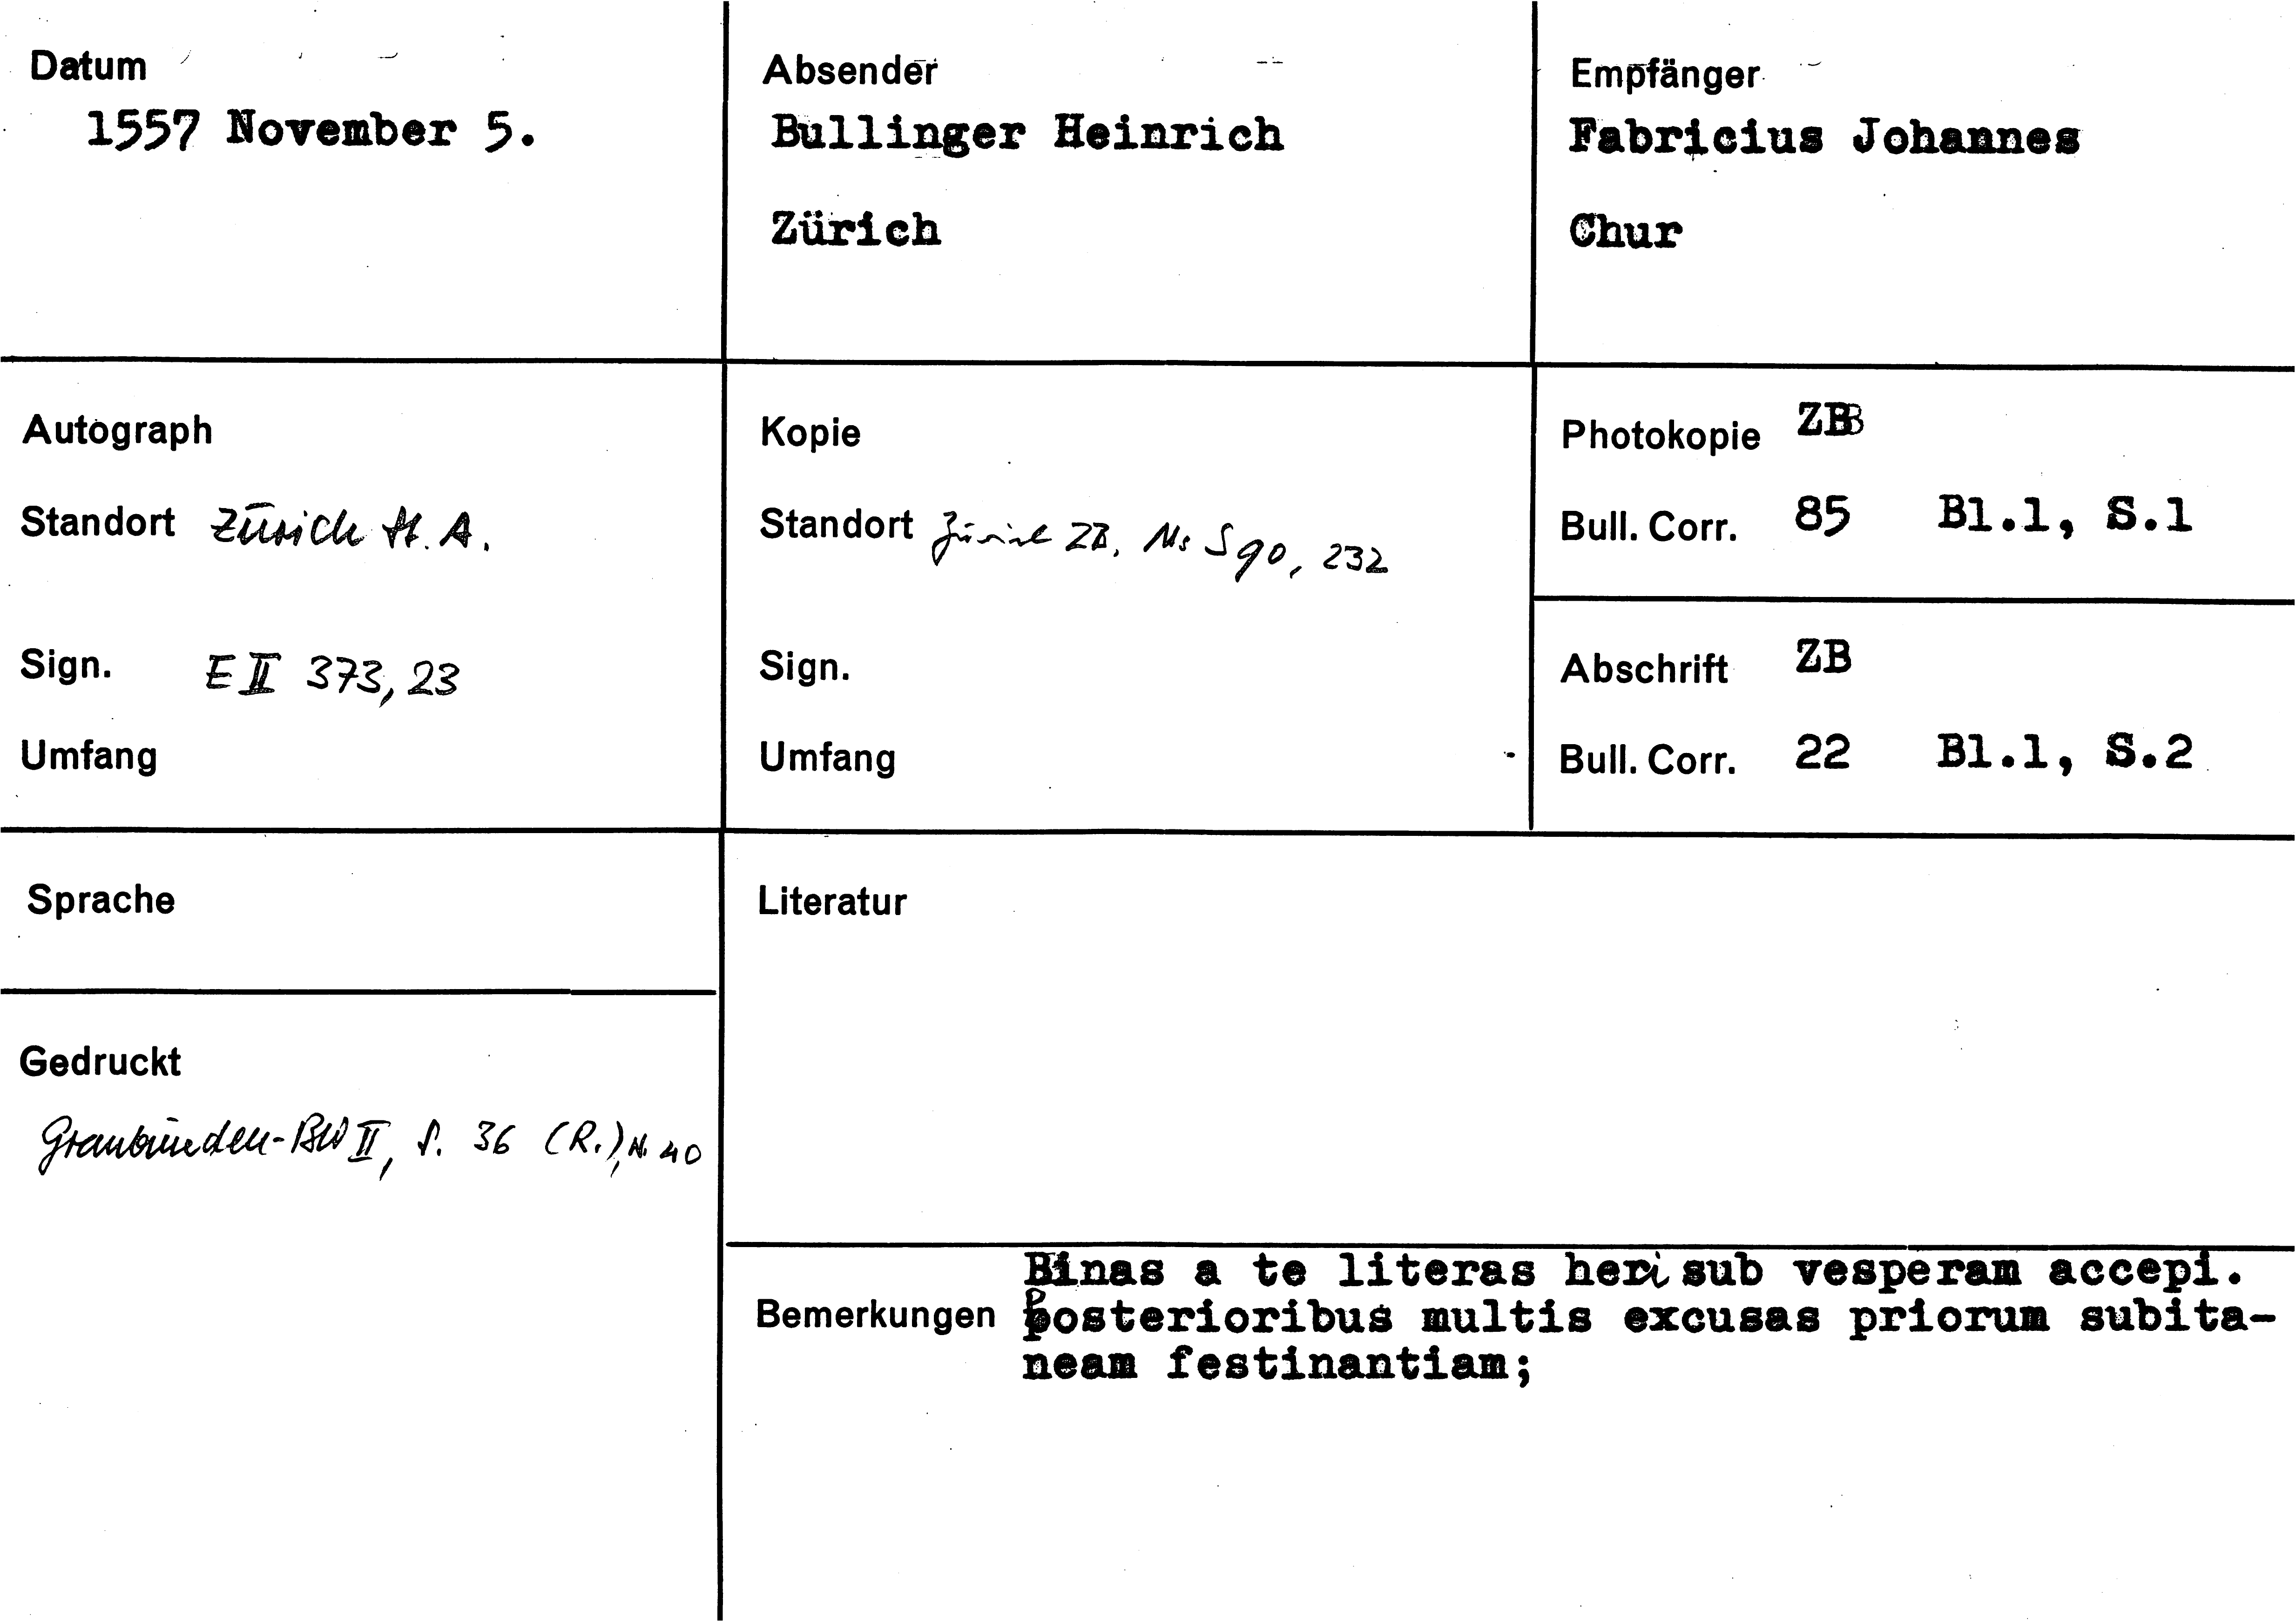 Datum
1557 November 5.
Absender
Bullinger Heinrich
Zürich
Empfänger
Fabricius Johannes
Chur
Autograph
Standort Zürich St. A.
Sign. E II 373, 23
Umfang
Kopie
Standort Zürich ZB, Ms S 90, 232
Sign.
Umfang
Photokopie ZB
Bull. Corr. 85 Bl.1, S.1
Abschrift ZB
Bull. Corr. 22 Bl.1, S.2
Sprache
Gedruckt
Graubünden-BW II, S. 36 (R.), N. 40
Literatur
Bemerkungen
Binas a te literas heri sub vesperam accepi.
Posterioribus multis excusas priorum subita-
neam festinantiam;